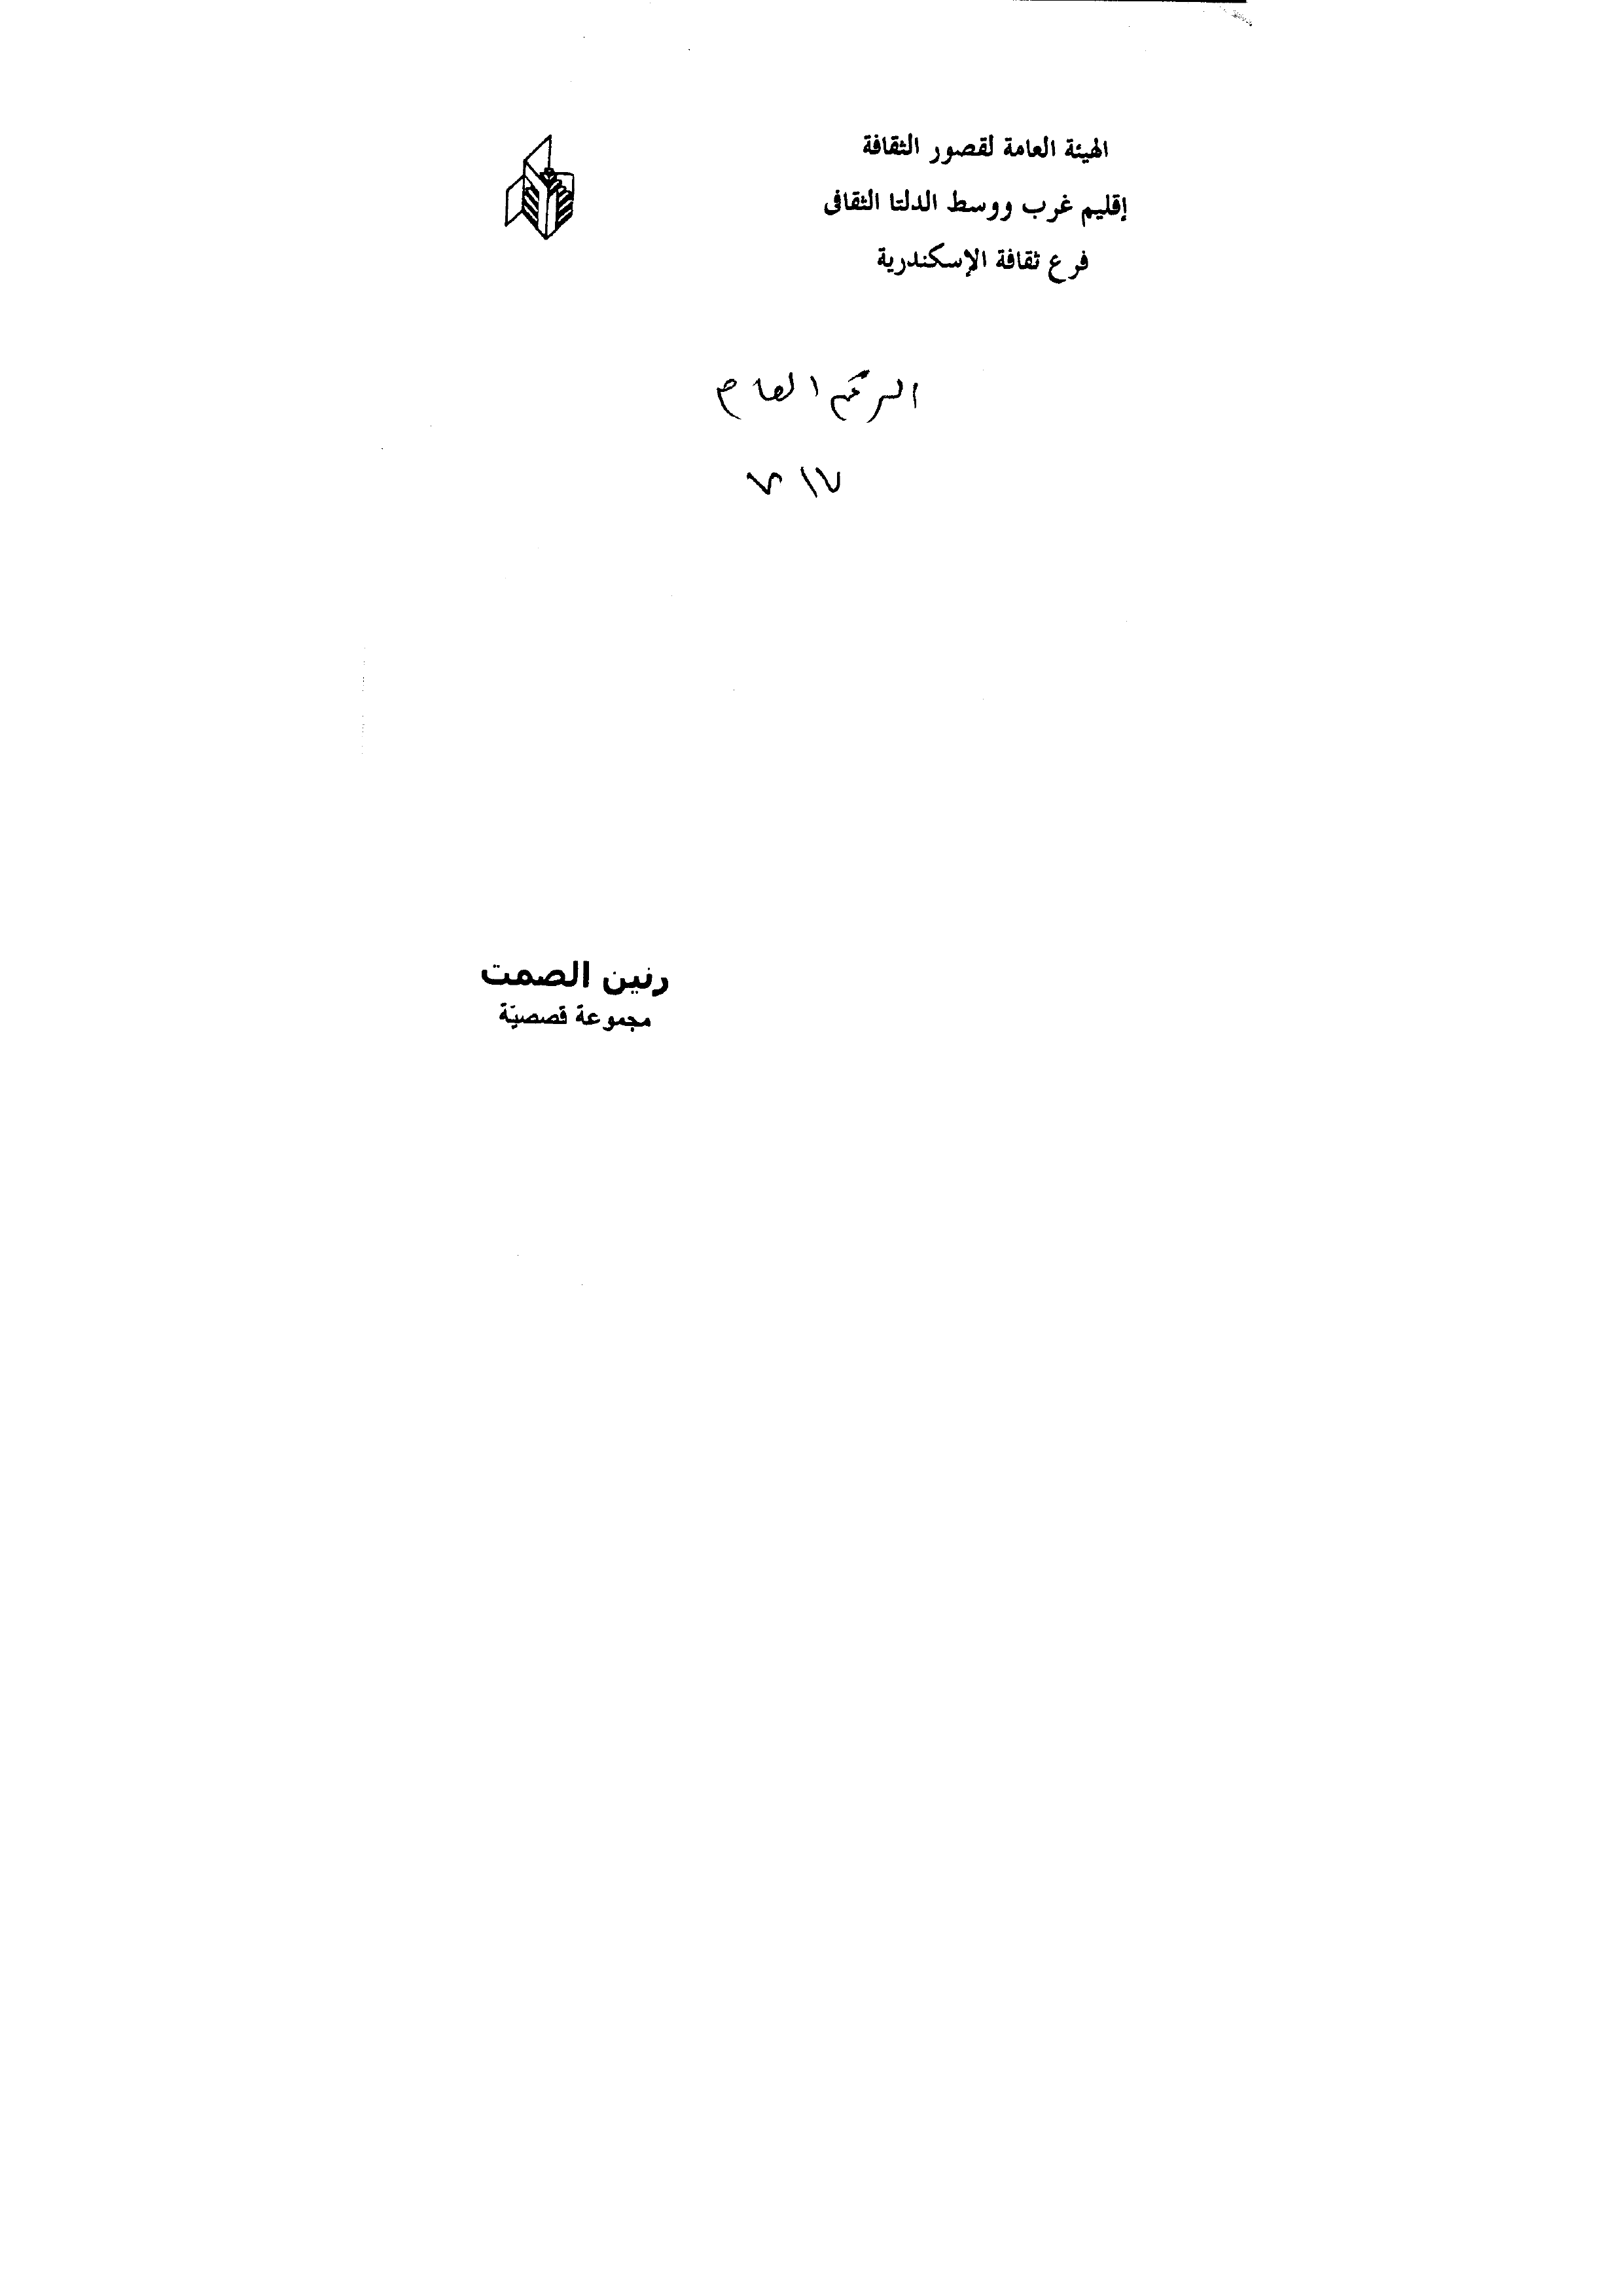 الهيئة العامة لقصور الثقافة
إقليم غرب ووسط الدلتا الثقافى
فرع ثقافة الإسكندرية
الرقم العام
رنين الصمت
مجموعة قصصيّة